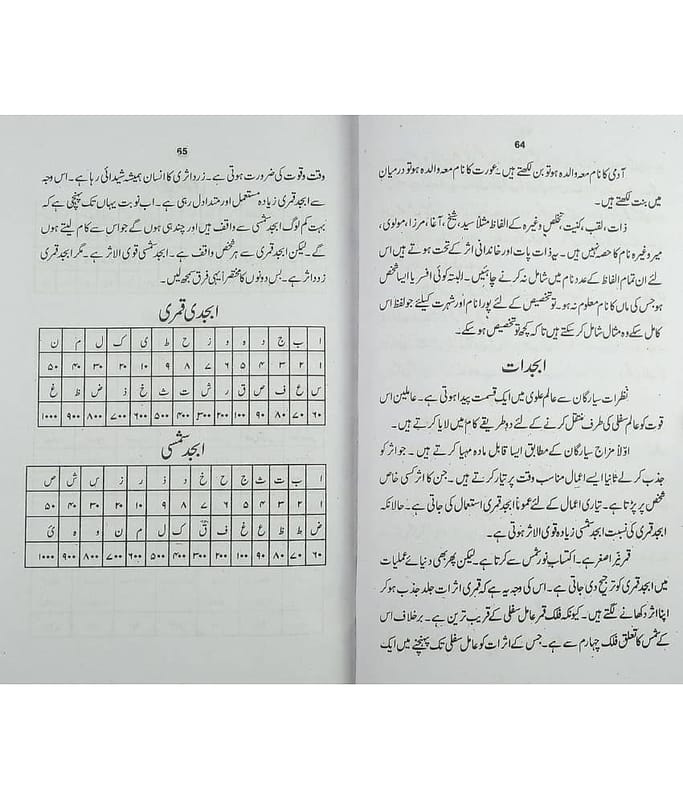 64
آدمی کا نام معہ والدہ ہو تو بن لکھتے ہیں۔ عورت کا نام معہ والدہ ہو تو درمیان
میں بنت لکھتے ہیں۔
ذات، لقب، کنیت، تخلص وغیرہ کے الفاظ مثلاً سید، شیخ، آغا، مرزا، مولوی،
میر وغیرہ نام کا حصہ نہیں ہیں۔ یہ ذات پات اور خاندانی اثر کے تحت ہوتے ہیں اس
لئے ان تمام الفاظ کے عدد نام میں شامل نہ کرنے چاہئیں۔ البتہ کوئی افسر یا ایسا شخص
ہو جس کی ماں کا نام معلوم نہ ہو۔ تو تخصیص کے لئے پورا نام اور شہرت کیلئے جو لفظ اس
کا مل سکے وہ مثال شامل کر سکتے ہیں تا کہ کچھ تو تخصیص ہو سکے۔
ابجدات
نظرات سیارگان سے عالم علوی میں ایک قسمت پیدا ہوتی ہے۔ عاملین اس
قوت کو عالم سفلی کی طرف منتقل کرنے کے لئے دو طریقے کام میں لایا کرتے ہیں۔
اولاً مزاج سیارگان کے مطابق ایسا قابل مادہ مہیا کرتے ہیں۔ جو اثر کو
جذب کرلے ثانیاً ایسے اعمال مناسب وقت پر تیار کرتے ہیں۔ جن کا اثر کسی خاص
شخص پر پڑتا ہے۔ تیاری اعمال کے لئے عموماً ابجد قمری استعمال کی جاتی ہے۔ حالانکہ
ابجد قمری کی نسبت ابجد شمسی زیادہ قوی الاثر ہوتی ہے۔
قمر نیر اصغر ہے۔ اکتساب نور شمس سے کرتا ہے۔ لیکن پھر بھی دنیائے عملیات
میں ابجد قمری کو ترجیح دی جاتی ہے۔ اس کی وجہ یہ ہے کہ قمری اثرات جلد جذب ہو کر
اپنا اثر دکھانے لگتے ہیں۔ کیونکہ فلک قمر عامل سفلی کے قریب ترین ہے۔ برخلاف اس
کے شمس کا تعلق فلک چہارم سے ہے۔ جس کے اثرات کو عامل سفلی تک پہنچنے میں ایک
65
وقت و قوت کی ضرورت ہوتی ہے۔ زود اثری کا انسان ہمیشہ شیدائی رہا ہے۔ اس وجہ
سے ابجد قمری زیادہ مستعمل اور متداول رہی ہے۔ اب نوبت یہاں تک پہنچی ہے کہ
بہت کم لوگ ابجد شمسی سے واقف ہیں اور چند ہی ہوں گے جو اس سے کام لیتے ہوں
گے۔ لیکن ابجد قمری سے ہر شخص واقف ہے۔ ابجد شمسی قوی الاثر ہے۔ مگر ابجد قمری
زود اثر ہے۔ بس دونوں کا مختصر ایہی فرق سمجھ لیں۔
ابجدی قمری
ا ب ج د ہ و ز ح ط ی ک ل م ن
۱ ۲ ۳ ۴ ۵ ۶ ۷ ۸ ۹ ۱۰ ۲۰ ۳۰ ۴۰ ۵۰
س ع ف ص ق ر ش ت ث خ ذ ض ظ غ
۶۰ ۷۰ ۸۰ ۹۰ ۱۰۰ ۲۰۰ ۳۰۰ ۴۰۰ ۵۰۰ ۶۰۰ ۷۰۰ ۸۰۰ ۹۰۰ ۱۰۰۰
ابجد شمسی
ا ب ت ث ج ح خ د ذ ر ز س ش ص
۱ ۲ ۳ ۴ ۵ ۶ ۷ ۸ ۹ ۱۰ ۲۰ ۳۰ ۴۰ ۵۰
ض ط ظ ع غ ف ق ک ل م ن و ہ ی
۶۰ ۷۰ ۸۰ ۹۰ ۱۰۰ ۲۰۰ ۳۰۰ ۴۰۰ ۵۰۰ ۶۰۰ ۷۰۰ ۸۰۰ ۹۰۰ ۱۰۰۰